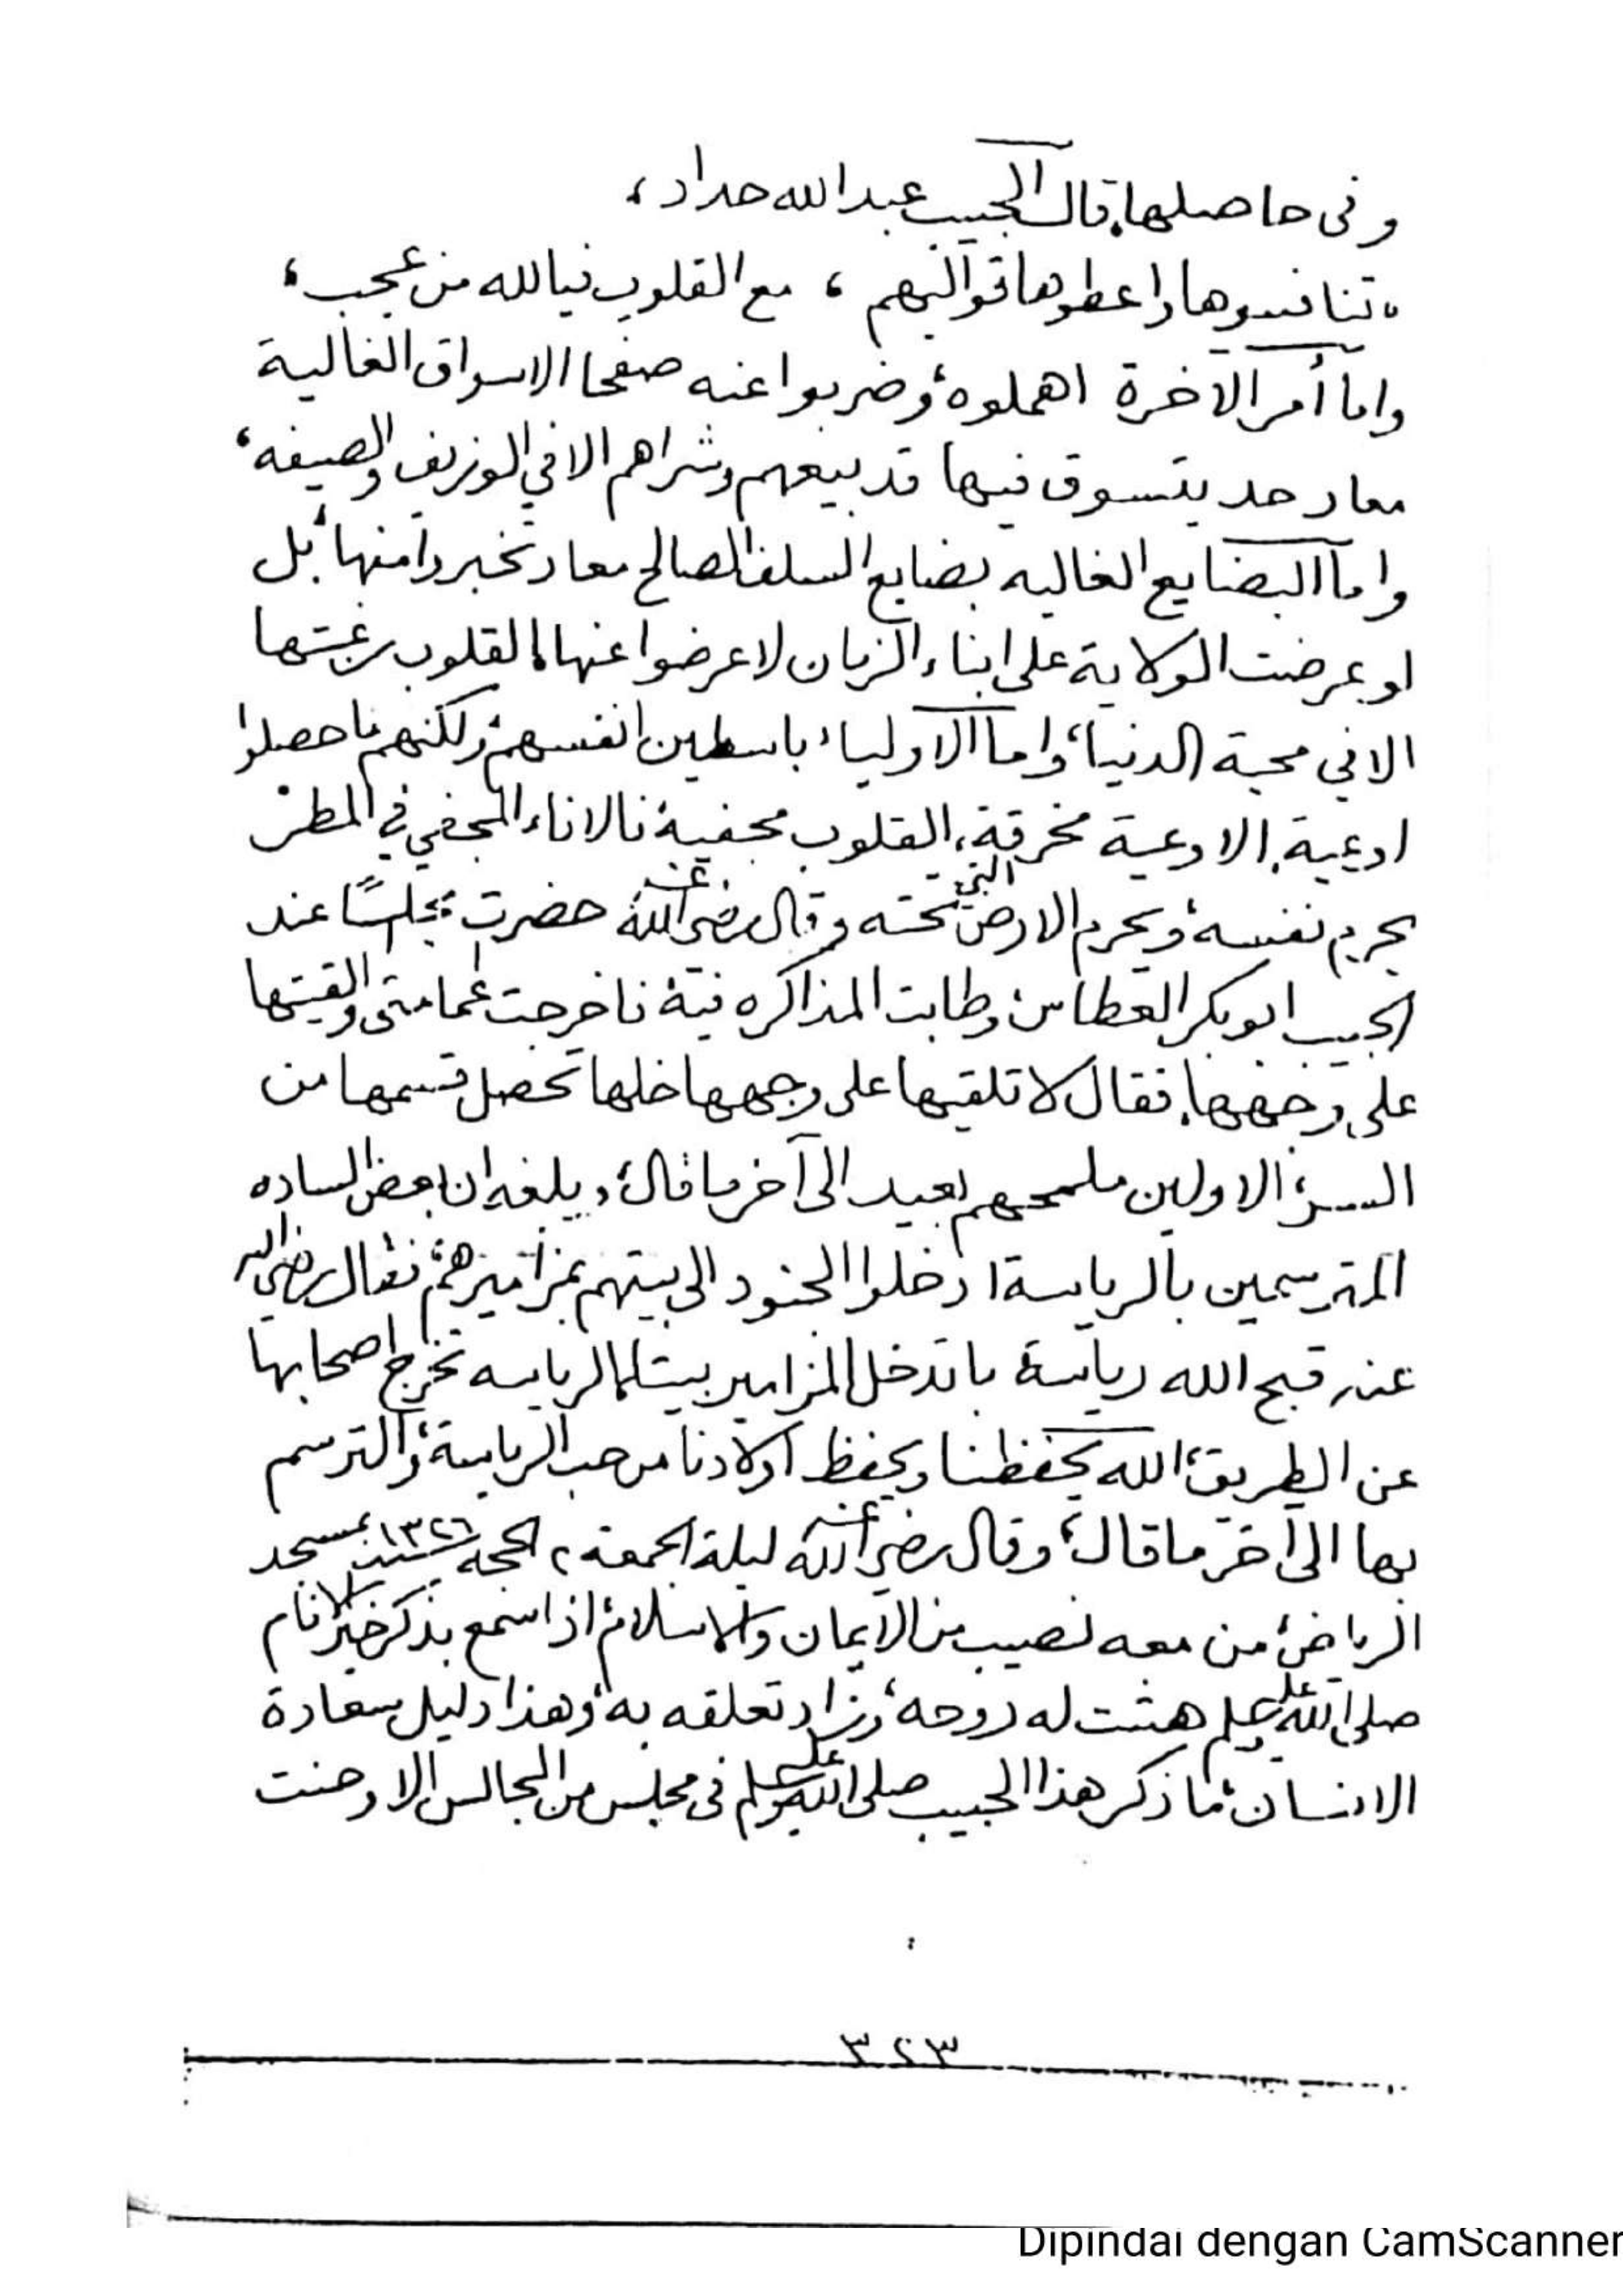 وفى حاصلها، قال الحبيب عبدالله حداد،
،تنافسوها واعطوها قوالبهم ، مع القلوب فيالله من عجب،
واما أمر الآخرة اهملوه، وضربوا عنه صفحا الاسواق الغالية
معاد حد يتسوق فيها قد بيعهم وشراهم الا في الوزيف والصيفه،
واما البضايع الغاليه بضايع السلف الصالح معاد تخبروا منها، بل
لو عرضت الولاية على ابناء الزمان لاعرضوا عنها، القلوب رغبتها
الا في محبة الدنيا، واما الاولياء باسطين انفسهم، ولكنهم ما حصلوا
ادعية، الاوعية مخرقة، القلوب مجفية، فالاناء المجفي في المطر
يحرم نفسه، ويحرم الارض التي تحته وقال رضي الله عنه حضرت مجلسًا عند
الحبيب ابوبكر العطاس، وطابت المذاكره فيه، فاخرجت عمامتى والقيتها
على وجهها، فقال لا تلقيها على وجهها خلها تحصل قسمها من
السر، الاولين ملمحهم بعيد الى آخر ما قال، وبلغه ان بعض الساده
المترسمين بالرياسة ادخلوا الجنود الى بيتهم بمزاميرهم، فقال رضي الله
عنه، قبح الله رياسة باتدخل المزامير بيتنا، الرياسه تخرج اصحابها
عن الطريق، الله يحفظنا ويحفظ اولادنا من حب الرياسة، والترسم
بها الى آخر ما قال، وقال رضي الله عنه ليلة الجمعة ٢ الحجه سنة ١٣٢٦ بمسجد
الرياض، من معه نصيب من الايمان والاسلام، اذا سمع بذكر خير الانام
صلى الله عليه وسلم هشت له روحه، وزاد تعلقه به، وهذا دليل سعادة
الانسان، ما ذكر هذا الحبيب صلى الله عليه وسلم فى مجلس من المجالس الا وحنت
٣٢٣
Dipindai dengan CamScanner